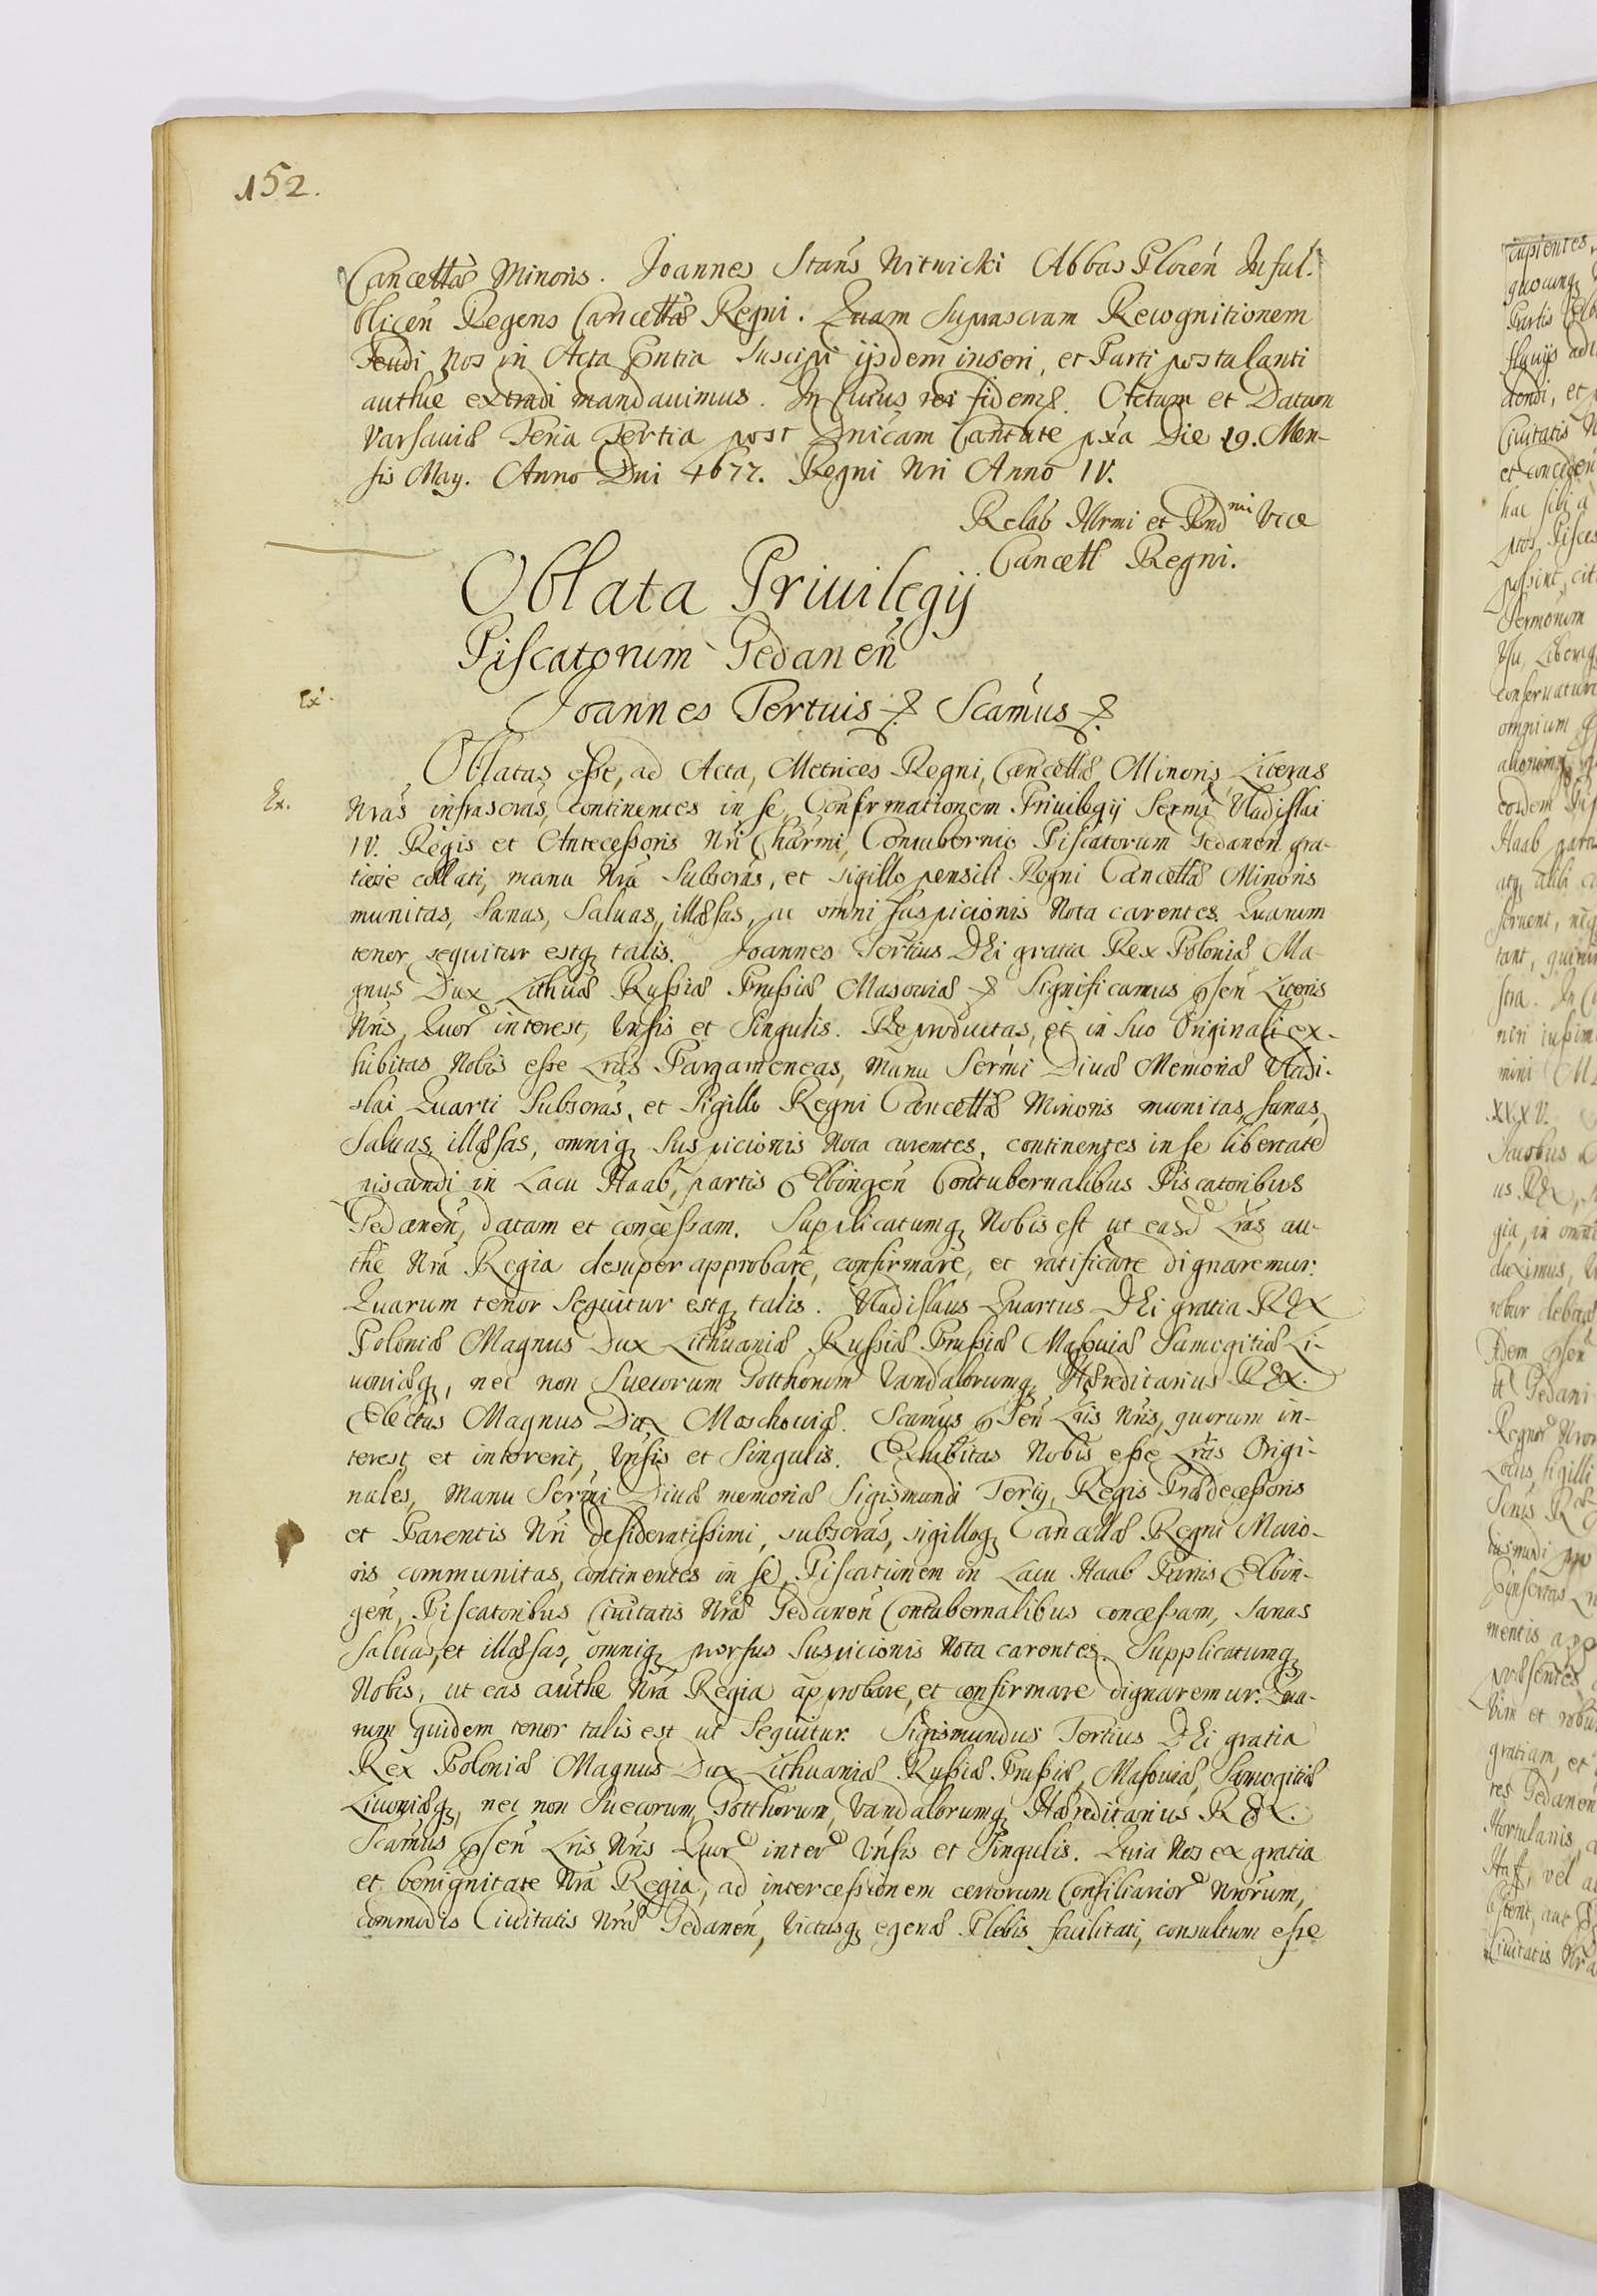 152.
Cancellæ Minoris. Joannes Stans Witwicki Abbas Plocen̄ Inful.
blicen̄ Regens Cancellæ Regni. Quam Suprascram Recognitionem
Feudi Nos in Acta pn̄tia suscipi ijsdem inseri, et Parti postulanti
authue extradi mandauimus. In Cuius rei fidem. Actum et Datum
Varsauiæ Feria Tertia post Dn̄icam Cantate px̄a Die 19. Men-
sis May. Anno Dn̄i 1677. Regni Nr̄i Anno IV.
Relāō Illr̄mi et Rn̄d mi Vice
Cancell Regni.
Oblata Priuilegij
Piscatorum Gedanen̄
Ex.
Joannes Tertuis Scamus
Oblatas esse, ad Acta, Metrices Regni, Cancellæ Minoris, Literas
Ex.
Nras infrascras, continentes in se, Confirmationem Priuilegij Sermi Vladislai
IV. Regis et Antecessoris Nri Charmi, Contubernio Piscatorum Gedanen gra-
tiose collati, manu Nra Subscras, et sigillo pensili Regni Cancellæ Minoris
munitas, Sanas, Saluas, illæsas, ac omni suspicionis Nota carentes. Quarum
tenor sequitur estq talis. Joannes Tertius Dei gratia Rex Poloniæ Ma-
gnus Dux Lithuæ Russiæ Prussiæ Masouiæ Significamus pn̄sen Literis
Nris, Quor interest, Vnsis et Singulis. Reproductas, et in suo Originali ex-
hibitas Nobis esse Lras Pargameneas, manu Sermi Diuæ Memoriæ Vladi-
slai Quarti Subscras, et Sigillo Regni Cancellæ Minoris munitas, sanas,
Saluas, illæsas, omniq suspicionis Nota carentes, continentes in se libertate
piscandi in Lacu Haab, partis Elbingen Contubernalibus Piscatoribus
Gedanen, datam et concessam. Suplicatumq Nobis est ut easd Lras au-
the Nra Regia desuper approbare, confirmare, et ratificare dignaremur.
Quarum tenor sequitur estq talis. Vladislaus Quartus Dei gratia REX
Poloniæ Magnus Dux Lithuaniæ Russiæ Prussiæ Masouiæ Samogitiæ Li-
uoniæq, nec non Suecorum Gotthorum Vandalorumq Hæreditarius REX.
Electus Magnus Dux Moschouiæ. Scamus pn̄sen Lris Nris, quorum in-
terest et intererit, Vnsis et Singulis. Exhibitas Nobis esse Lras Origi-
nales, Manu Sermi Diuæ memoriæ Sigismundi Tertij, Regis Prædecessoris
et Parentis Nri desideratissimi, subscras, sigilloq Cancellæ Regni Maio-
ris communitas, continentes in se, Piscationem in Lacu Haab Partis Elbin-
gen, Piscatoribus Ciuitatis Nræ Gedanen Contubernalibus concessam, Sanas
saluas, et illæsas, omniq prorsus suspicionis Nota carentes. Supplicatumq
Nobis, ut eas authe Nra Regia approbare, et confirmare dignaremur. Qua-
rum quidem tenor talis est ut Sequitur. Sigismundus Tertius Dei gratia
Rex Poloniæ Magnus Dux Lithuaniæ Russiæ Prussiæ, Masouiæ, Samogitiæ
Liuoniæq, nec non Suecorum, Gotthorum, Vandalorumq Hæreditarius REX.
Scamus pn̄sen Lris Nris Quor inter Vnsis et Singulis. Quia Nos ex gratia
et benignitate Nra Regia, ad intercessionem certorum Consiliarior Nrorum,
commodis Ciuitatis Nræ Gedanen, Victusq egenæ Plebis facilitati, consultum esse